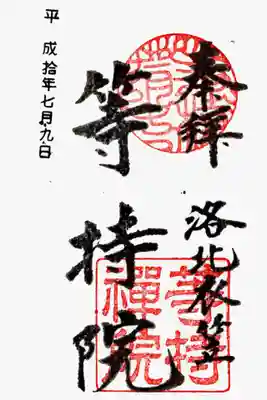 奉拝
洛北衣笠
等持院
平成拾年七月九日
等持
禪院